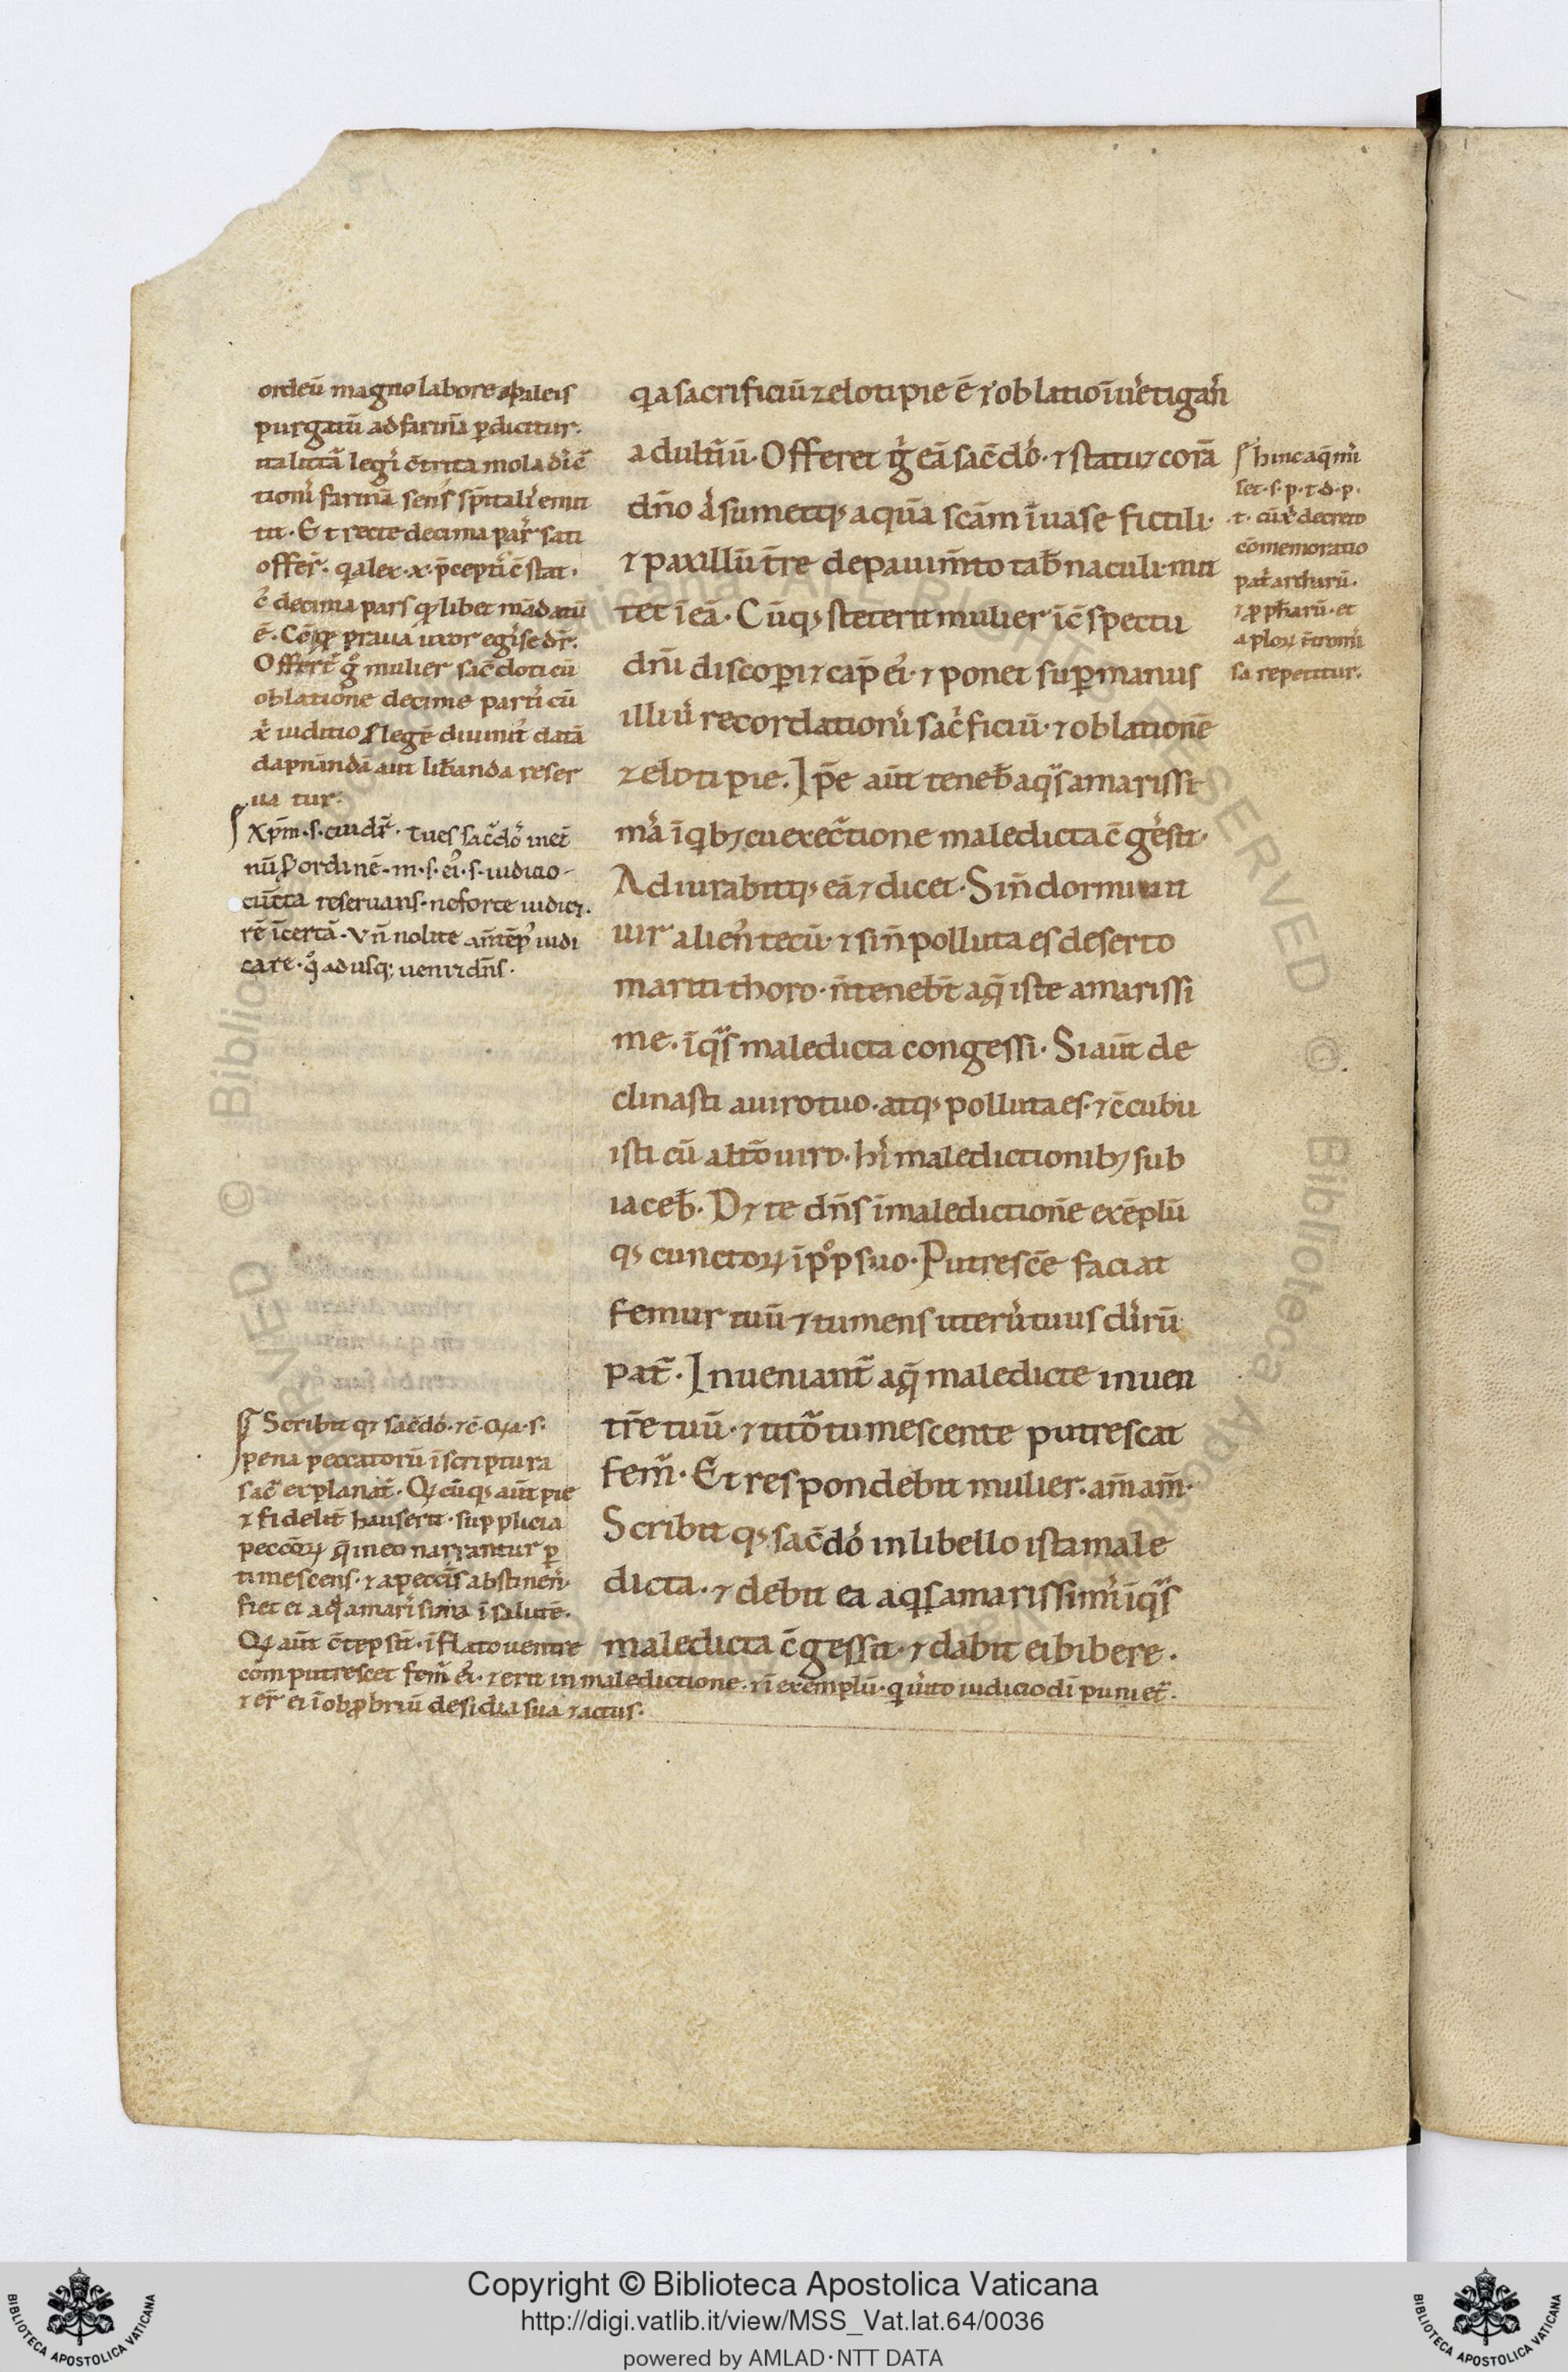 ordeū magno labore a paleis
purgatū ad farinā ꝑducitur.
ita littā legı̓ c̄trita mola dı̓c̄
tionı̓ farinā senſ sp̄italı̓ emit
tit. Et recte decima parſ sati
offer̄. q̓a lex .x. p̄ceptı̓ c̄stat.
decima pars
ē. praua uxor egı̓se dr̄.
Offert̄ g̊ mulier sac̄doti cū
oblatione decime partı̓ cū
x̓ iuditio legē diuinit̓ datā
dapnandā aut lib̄anda reser
ua tur.
Xp̄m .s. cui dr̄. tu es sac̄doſ inet̄
nū ordinē .m. s. eı̓ .s. iudicio
cūcta reseruans. ne forte iudicꝫ
rē īcertā. Vn̄ nolite an̄ tēpꝰ iudi
care. q̊adusqꝫ ueniat dn̄s.
Scribit qꝫ sac̄doſ. ⁊c̄.
pena peccatorū ī scriptura
sac̄ explanat̄. Q cūqꝫ aūt pie
⁊ fidelit̄ hauserit. supplicia
pecc̄oꝝ q̄ in eo narrantur ꝑ
timescens. ⁊ a pecc̄is abstinen̄.
fiet ei aq̄ amarı̓sima ī salutē.
Qı̓ aūt c̄tēpsit. īflato uentre
computrescet fem̄ eı̓. ⁊ erit in maledictione. ⁊ ī exemplū. q̓ iusto iudicio dī puniet̄.
⁊ er̄ ei ī obꝓbriū desidia sua ⁊ actus.
q̓a sacrificiū zelotipie ē ⁊ oblatio īuestigan̄
adult̄iū. Offeret g̊ eā sac̄doſ. ⁊ statuꝫ corā
dn̄o sumetqꝫ aquā sc̄am ī uase fictili.
⁊ paxillū t̄re de pauim̄to tab̄naculi mit
tet ī eā. Cūqꝫ steterit mulier ī c̄spectu
dn̄i discopı̓ꝫ cap̄ eı̓. ⁊ ponet suꝑ manus
illiuſ recordationı̓ sac̓ficiū. ⁊ oblationē
zelotipie. Ip̄e aūt teneb̄ aq̓s amarissi
maſ ī q̓bꝫ cū execr̄tione maledicta c̄gesſit.
Adiurabitqꝫ eā ⁊ dicet. Si n̄ dormiuit
uir alienꝰ tecū. ⁊ si n̄ polluta es deserto
mariti thoro. n̄ te noceb̄t aq̄ iste amarissi
me. ī q̓s maledicta congessi. Si aūt de
clinasti a uiro tuo. atqꝫ polluta es. ⁊ c̄cubu
isti cū alt̄o uiro. hı̓ maledictionibꝫ sub
iaceb̄. Dꝫ te dn̄s ī maledictionē exēplū
qꝫ cunctoꝝ ī pp̊lo suo. Putrescē faciat
femur tuū ⁊ tumens uterꝰ tuus dirū
pat̄. Inueniant̄ aq̄ maledicte in uen
trē tuū. ⁊ ut̄o tumescente putrescat
fem̄. Et respondebit mulier. am̄ am̄.
Scribit qꝫ sac̄doſ in libello ista male
dicta. ⁊ delebit ea aq̓s amarissimı̓ ī q̓s
maledicta c̄gessit. ⁊ dabit ei bibere.
hinc aq̄m̓
set. s. p. t. d. p.
t. cū x̓ decreto
cōmemoratio
pat̓archarū.
⁊ ꝓph̄arū. et
aplorꝫ
sa repetitur.
Copyright © Biblioteca Apostolica Vaticana
http://digi.vatlib.it/view/MSS_Vat.lat.64/0036
powered by AMLAD·NTT DATA
BIBLIOTECA APOSTOLICA VATICANA
BIBLIOTECA APOSTOLICA VATICANA